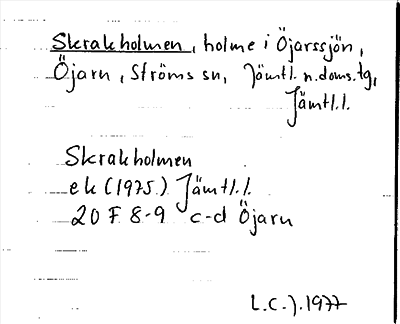 Skrakholmen, holme i Öjarssjön,
Öjarn, Ströms sn, Jämtl. n. doms. tg,
Jämtl. l.
Skrakholmen
ek (1975) Jämtl. l.
20 F 8-9 c-d Öjarn
L.C.J. 1977